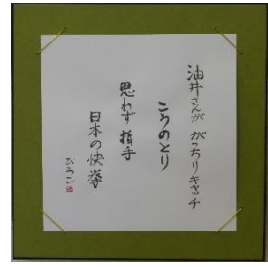 油井さんが がっちりキャッチ
こうのとり
思わず 拍手
日本の快挙
ひろこ